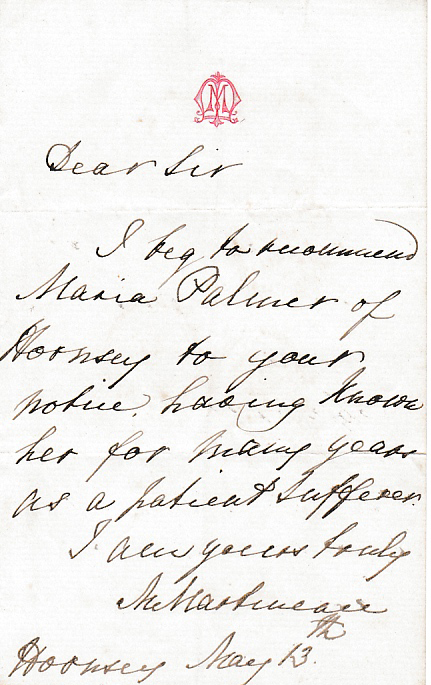 M
Dear Sir
I beg to recommend
Maria Palmer of
Hornsey to your
notice, having known
her for many years
as a patient sufferer.
I am yours truly
M Martineau
Hornsey May 13th